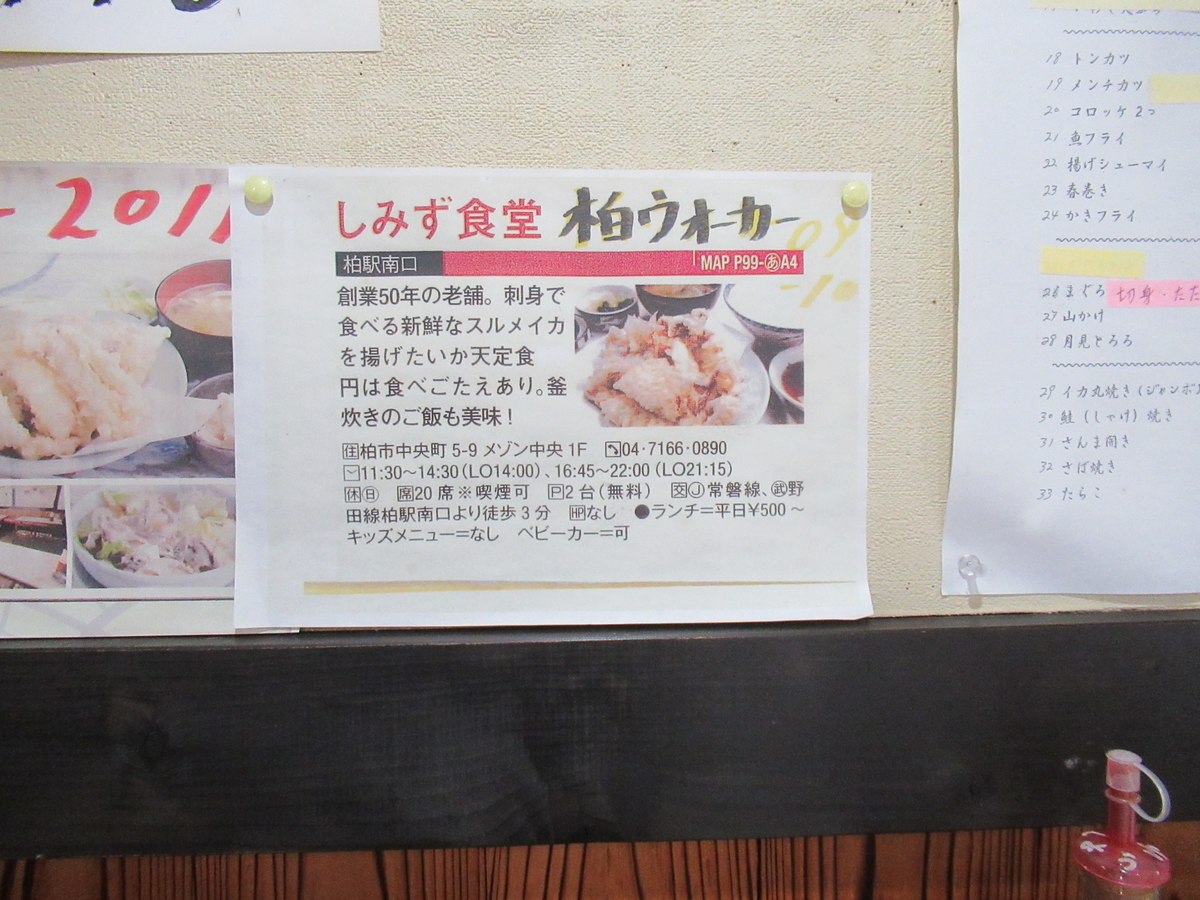 2011
しみず食堂 柏ウォーカー
09
-10
柏駅南口 MAP P99-あA4
創業50年の老舗。刺身で
食べる新鮮なスルメイカ
を揚げたいか天定食
円は食べごたえあり。釜
炊きのご飯も美味！
住柏市中央町 5-9 メゾン中央 1F 04・7166・0890
11:30～14:30(LO14:00)、16:45～22:00(LO21:15)
休日 席20 席※喫煙可 P2 台(無料) 交J常磐線、武野
田線柏駅南口より徒歩 3 分 HPなし ●ランチ=平日¥500～
キッズメニュー=なし ベビーカー=可
18 トンカツ
19 メンチカツ
20 コロッケ 2つ
21 魚フライ
22 揚げシューマイ
23 春巻き
24 かきフライ
26 まぐろ 切身・たた
27 山かけ
28 月見とろろ
29 イカ丸焼き(ジャンボ
30 鮭(しゃけ)焼き
31 さんま開き
32 さば焼き
33 たらこ